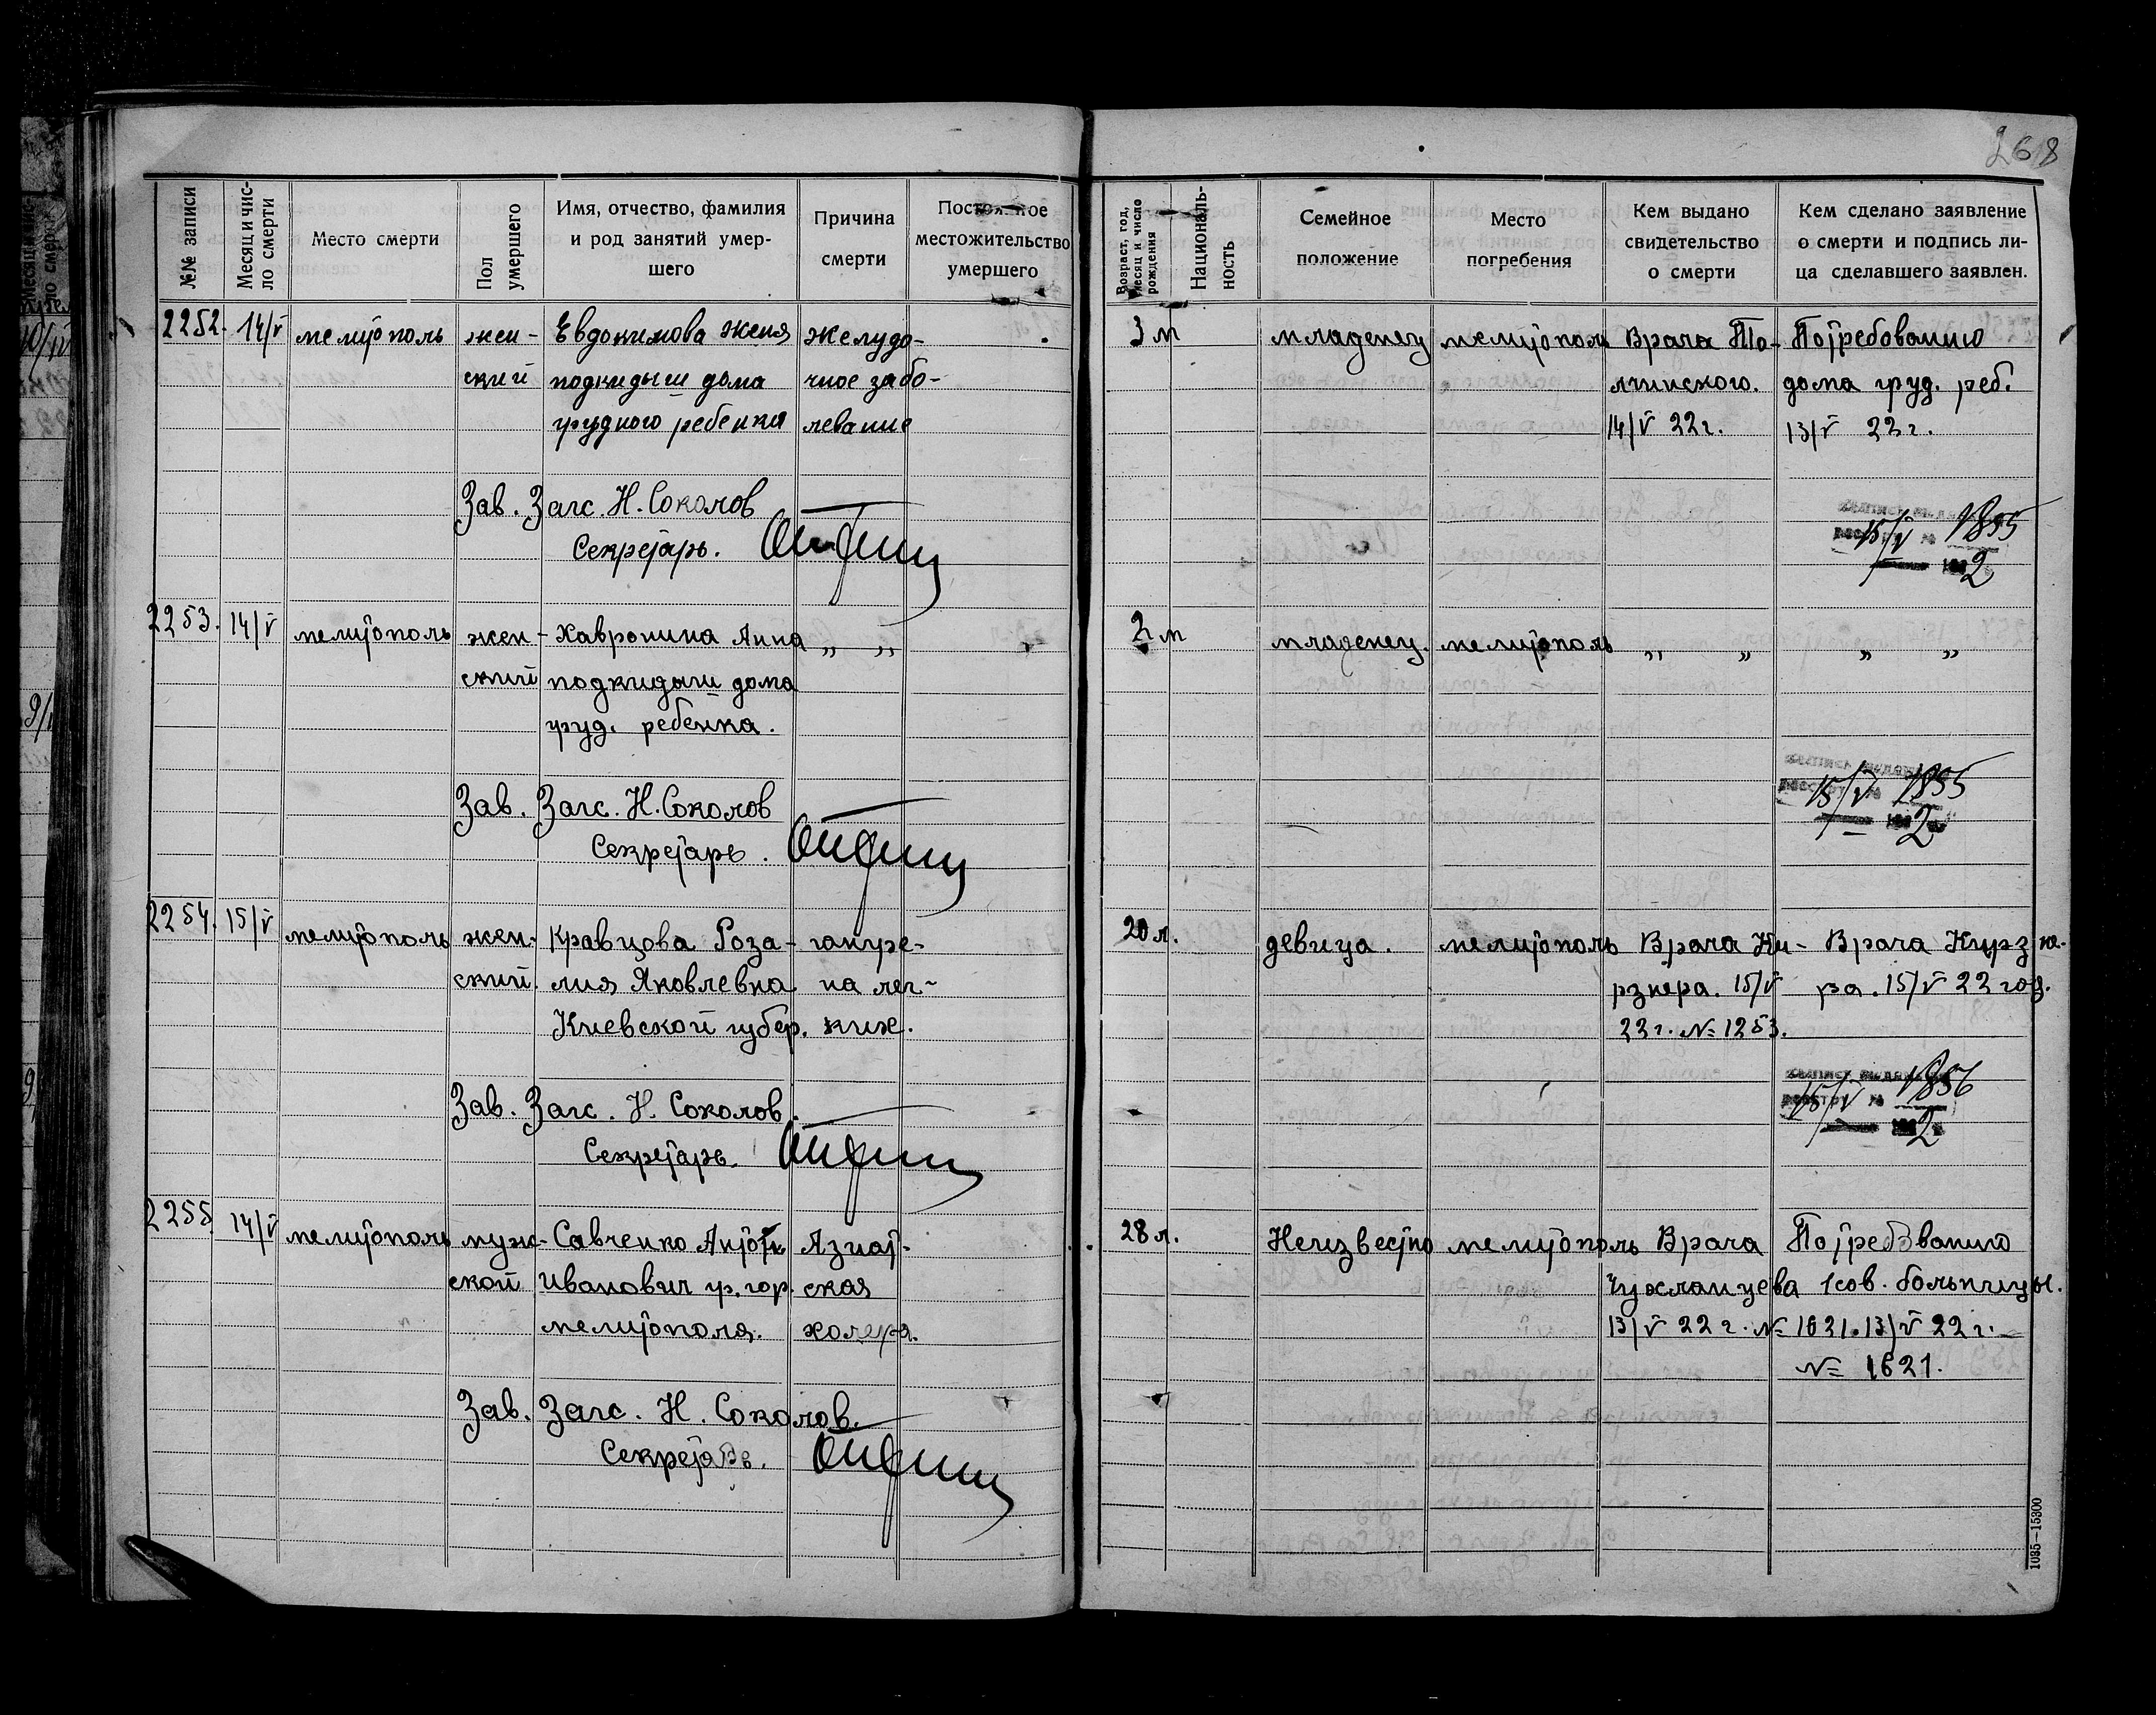 268
№№ записи
Месяц и число смерти
Место смерти
Пол умершего
Имя, отчество, фамилия
и род занятий умер-
шего
Причина
смерти
Постоянное
местожительство
умершего
Возраст, год,
месяц и число
рождения
Националь-
ность
Семейное
положение
Место
погребения
Кем выдано
свидетельство
о смерти
Кем сделано заявление
о смерти и подпись ли-
ца сделавшего заявлен.
2252. 14/V мелитополь жен- Евдокимова Женя Желудо- 3 м младенец мелитополь Врача То- По требованию
ский подкидыш дома чное забо- лчинского. дома груд. реб.
грудного ребенка левание 14/V 22 г. 13/V 22 г.
Зав. Загс. Н. Соколов
Секретарь.
15/V 1855
2
2253. 14/V мелитополь жен- Хавронина Анна „ „ 2 м младенец. мелитополь „ „ „ „
ский подкидыш дома
груд. ребенка.
Зав. Загс. Н. Соколов
Секретарь.
15/V 1855
2
2254. 15/V мелитополь жен- Кравцова Роза- гангре- 20 л. девица. мелитополь Врача Ки- Врача Кирзне-
ский. лия Яковлевна на лег- рзнера. 15/V ра. 15/V 22 год.
Киевской губер. ких. 22 г. № 1253.
Зав. Загс. Н. Соколов.
Секретарь.
15/V 1856
2
2255. 14/V мелитополь муж- Савченко Антон Азиат- 28 л. Неизвестно мелитополь Врача По требованию
ской Иванович гр. гор. ская Чухланцева 1 сов. больницы.
мелитополя. холера. 13/V 22 г. № 1621. 13/V 22 г.
№ 1621.
Зав. Загс. Н. Соколов.
Секретарь.
1035—15300